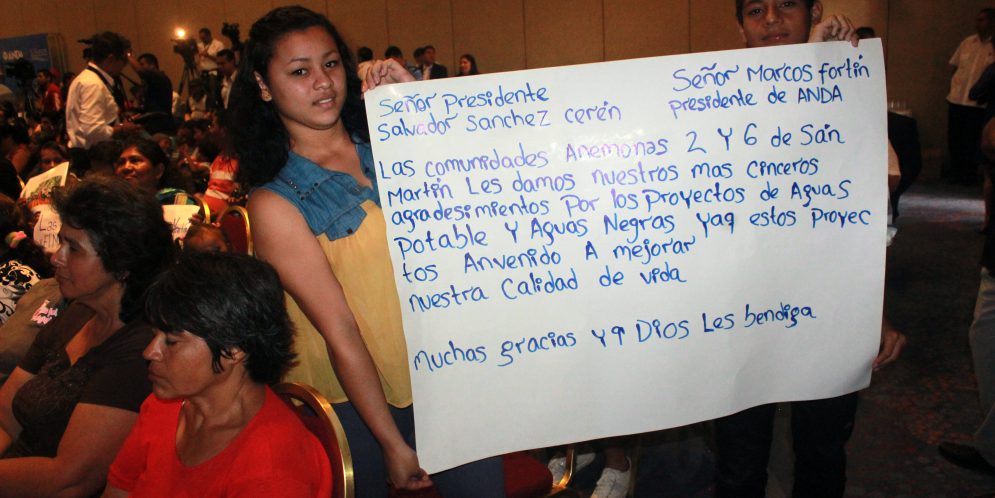 Señor Presidente
Salvador Sanchez cerén
Señor Marcos fortin
presidente de ANDA
Las comunidades Anemonas 2 Y 6 de San
Martin Les damos nuestros mas cinceros
agradesimientos Por los Proyectos de Aguas
Potable Y Aguas Negras Yaq estos Proyec
tos Anvenido A mejorar
nuestra Calidad de vida
muchas gracias Yq Dios Les bendiga
ANDA